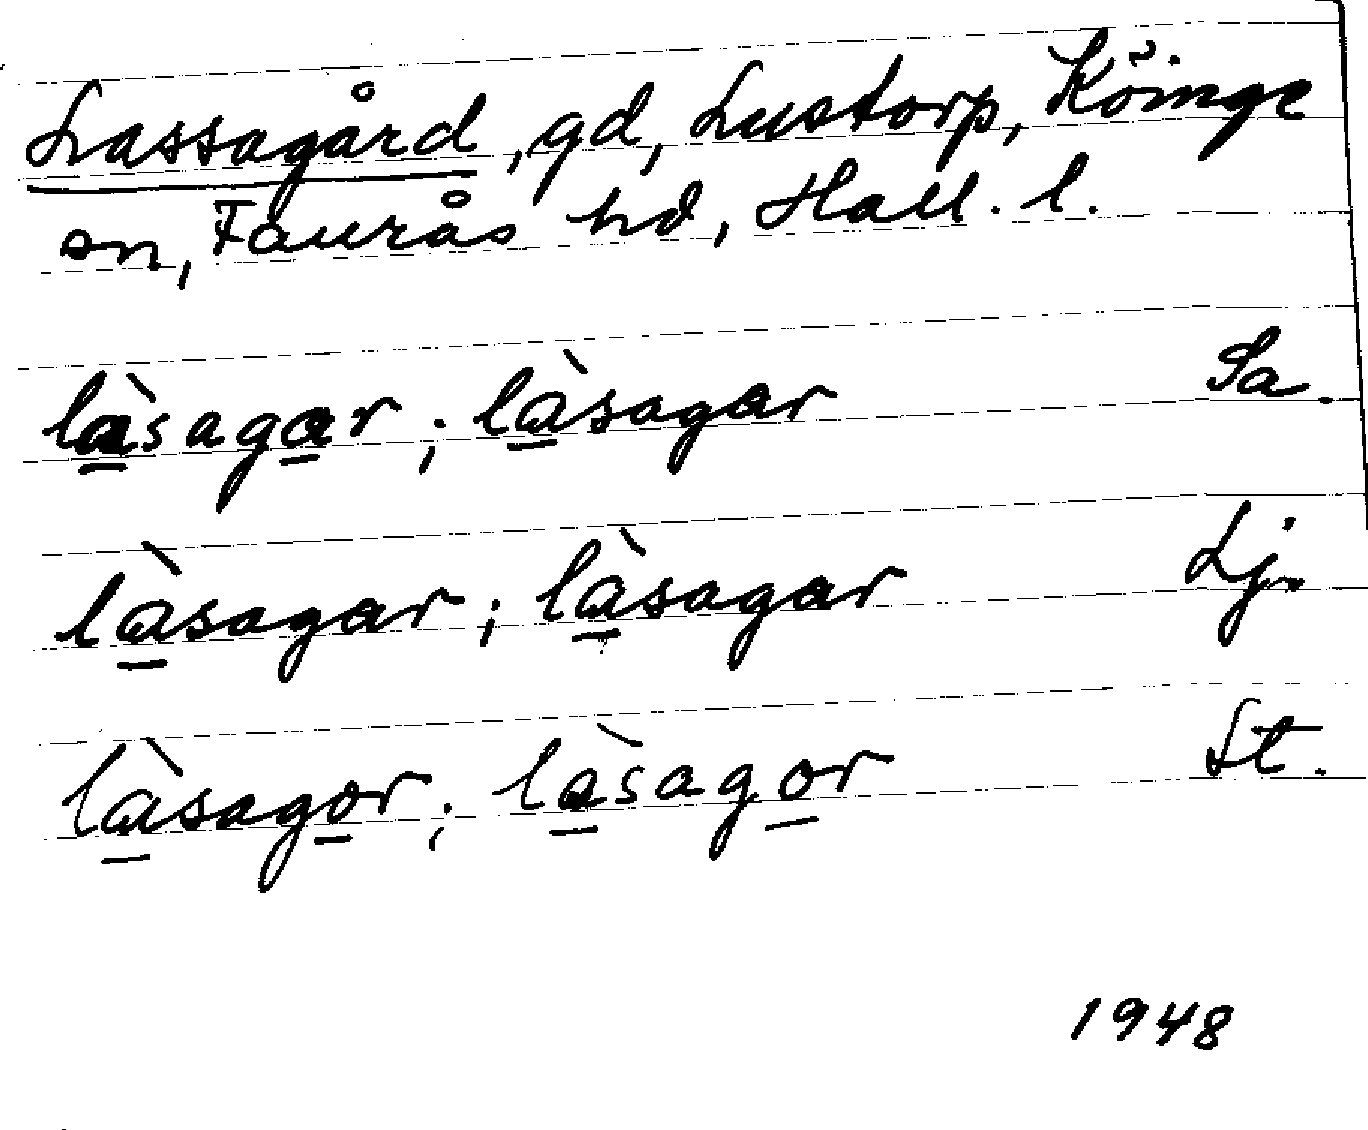 Lassagård, gd, Lustorp, Köinge
sn, Faurås hd, Hall. l.
làsagar; làsagar Sa.
làsagar; làsagar Lj.
làsagor; làsagor St.
1948